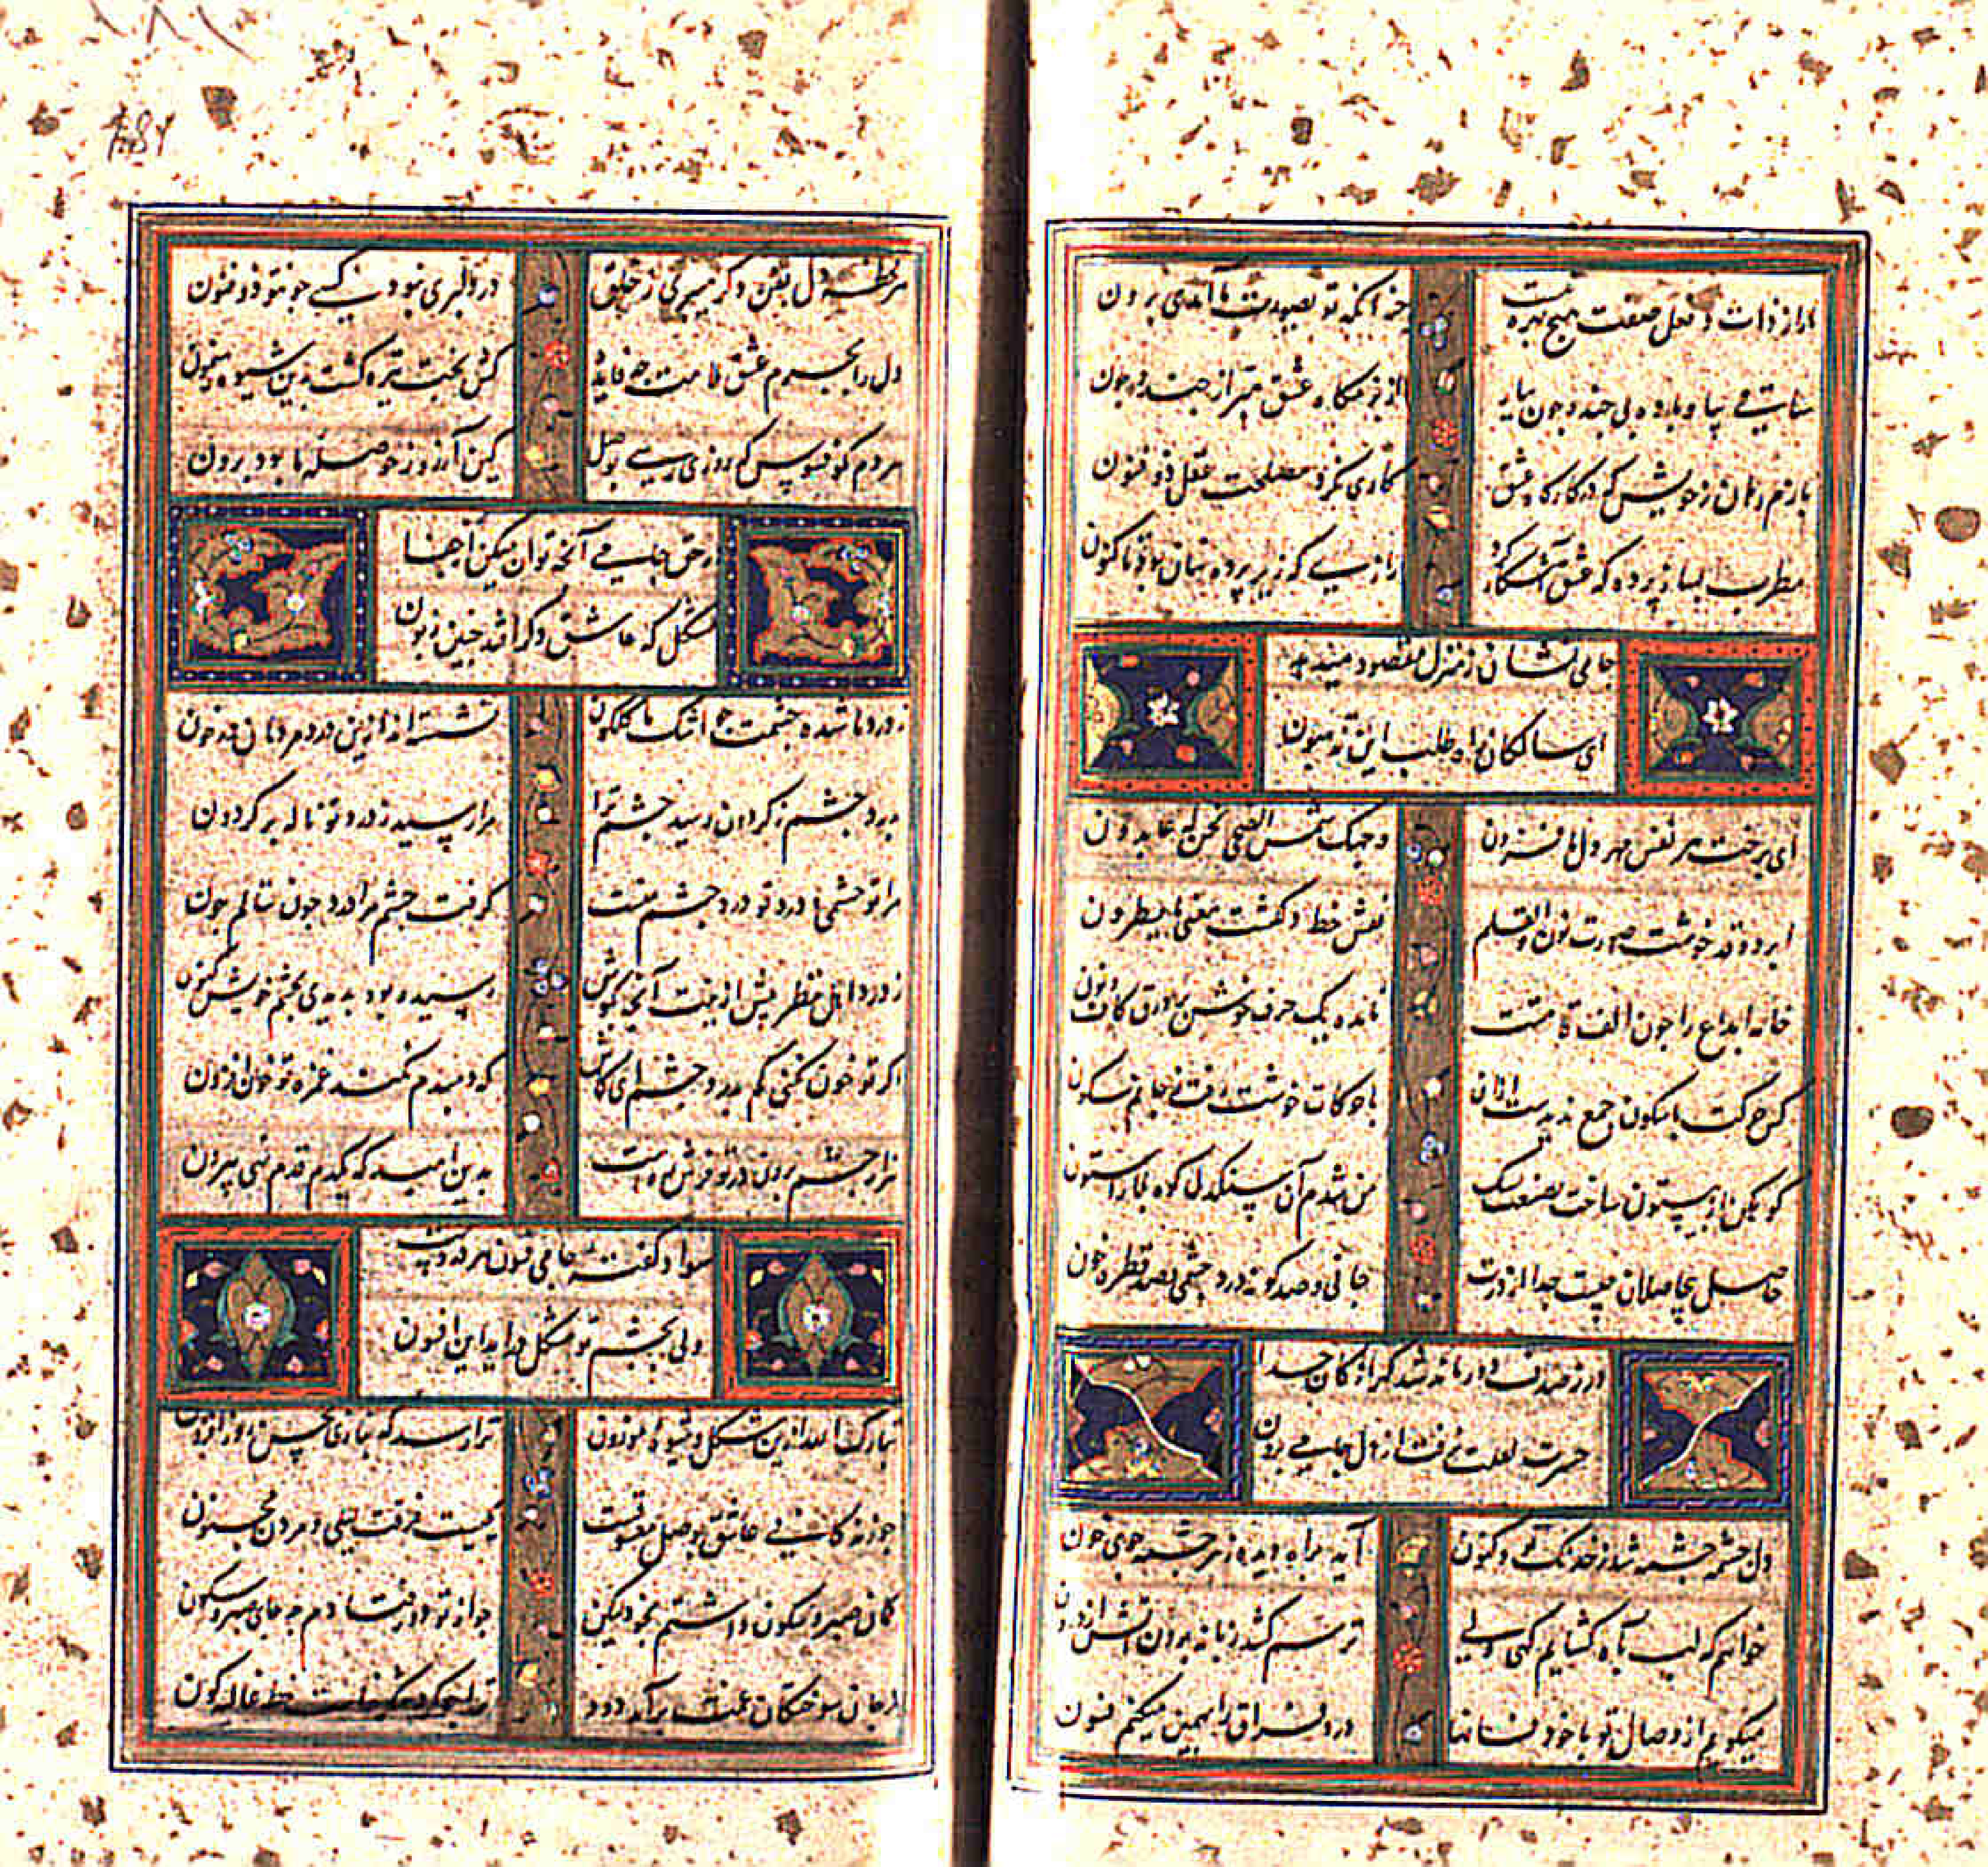 ما را ز ذات و فعل و صفت هیچ بهره نیست
جز آنکه تو بصورت ما آمدی برون
ساقی می بیار و باده بی چند و چون بیار
از بزمگاه عشق مبر از چند و چون
بازم رهان ز خویش که در کارگاه عشق
کاری نکرد مصلحت عقل ذو فنون
مطرب بساز پرده که عشق آشکار کرد
رازی که زیر پرده نهان بود تا کنون
جامی نشان ز منزل مقصود میدهد
ای سالکان راه طلب این تذهبون
ای ز رخت هر نفس مهر دل ما فزون
وجهک شمس الضحی نحن له عابدون
ابرو و قد خوشت صورت نون والقلم
نقش خط دلکشت معنی ما یسطرون
خامه ابداع را چون الف قامتت
نامده یک حرف خوش بر ورق کاف و نون
کس حرکت با سکون جمع ندیدست ازان
با حرکات خوشت رفت ز جانم سکون
کوهکن از بیستون ساخت بصنعت
من شدم آن سنگدل کوه بلا را ستون
حاصل بیحاصلان چیست جدا از درت
جانی و صد گونه درد چشمی و صد قطره خون
در ز صدف دور ماند شد گهر از کان جدا
حسرت لعلت نرفت از دل جامی برون
دل چشمه چشمه شد ز خدنگ تو و کنون
آید براه دیده ز هر چشمه جوی خون
خواهم که لب بآه گشایم گهی ولی
ترسم کشد زبانه برون آتش از درون
میگویم از وصال تو با خود فسانها
درد فراق را بهمین میکنم فسون
هر لحظه دل بفن دگر میبری ز خلق
در دلبری نبود کسی چو تو ذو فنون
دل را بجرم عشق ملامت چه فایده
کش بخت تیره گشت بدین شیوه رهنمون
مردم کو فسوس که روزی رسی بوصل
کین آرزو ز حوصله ما بود برون
در حق جامی آنچه توان میکن از جفا
مشکل که عاشق دگر افتد چنین زبون
ز درد تا شده چشمت چو اشک ما گلگون
نشسته‌اند ازین درد مردمان در خون
بدرد چشم ز گردون رسید چشم ترا
مرا رسید ز درد تو ناله بر گردون
مرا تو چشمی و درد تو درد چشم منست
گرفت چشم مرا درد چون ننالم چون
ز درد اهل نظر پیش ازینت آنچه بگوش
رسیده بود بدیدی بچشم خویش کنون
اگر تو خون نکنی کم بدرد چشم ای کاش
که دمبدم نکند غمزه تو خون افزون
هزار چشم براه در تو فرش رهست
بدین امید که یکدم قدم نهی بیرون
سواد گفته جامی فسون هر دردیست
ولی بچشم تو مشکل درآید این افسون
تبارک الله ازین شکل و شیوه موزون
ترا رسد که بنازی بحسن روز افزون
چو زندگانی عاشق بوصل معشوقست
یکیست فرقت لیلی و مردن مجنون
گمان صبر و سکون داشتم بخود لیکن
چو از تو دور فتادم چه جای صبر و سکون
ز جان سوختگان غمت برآمد دود